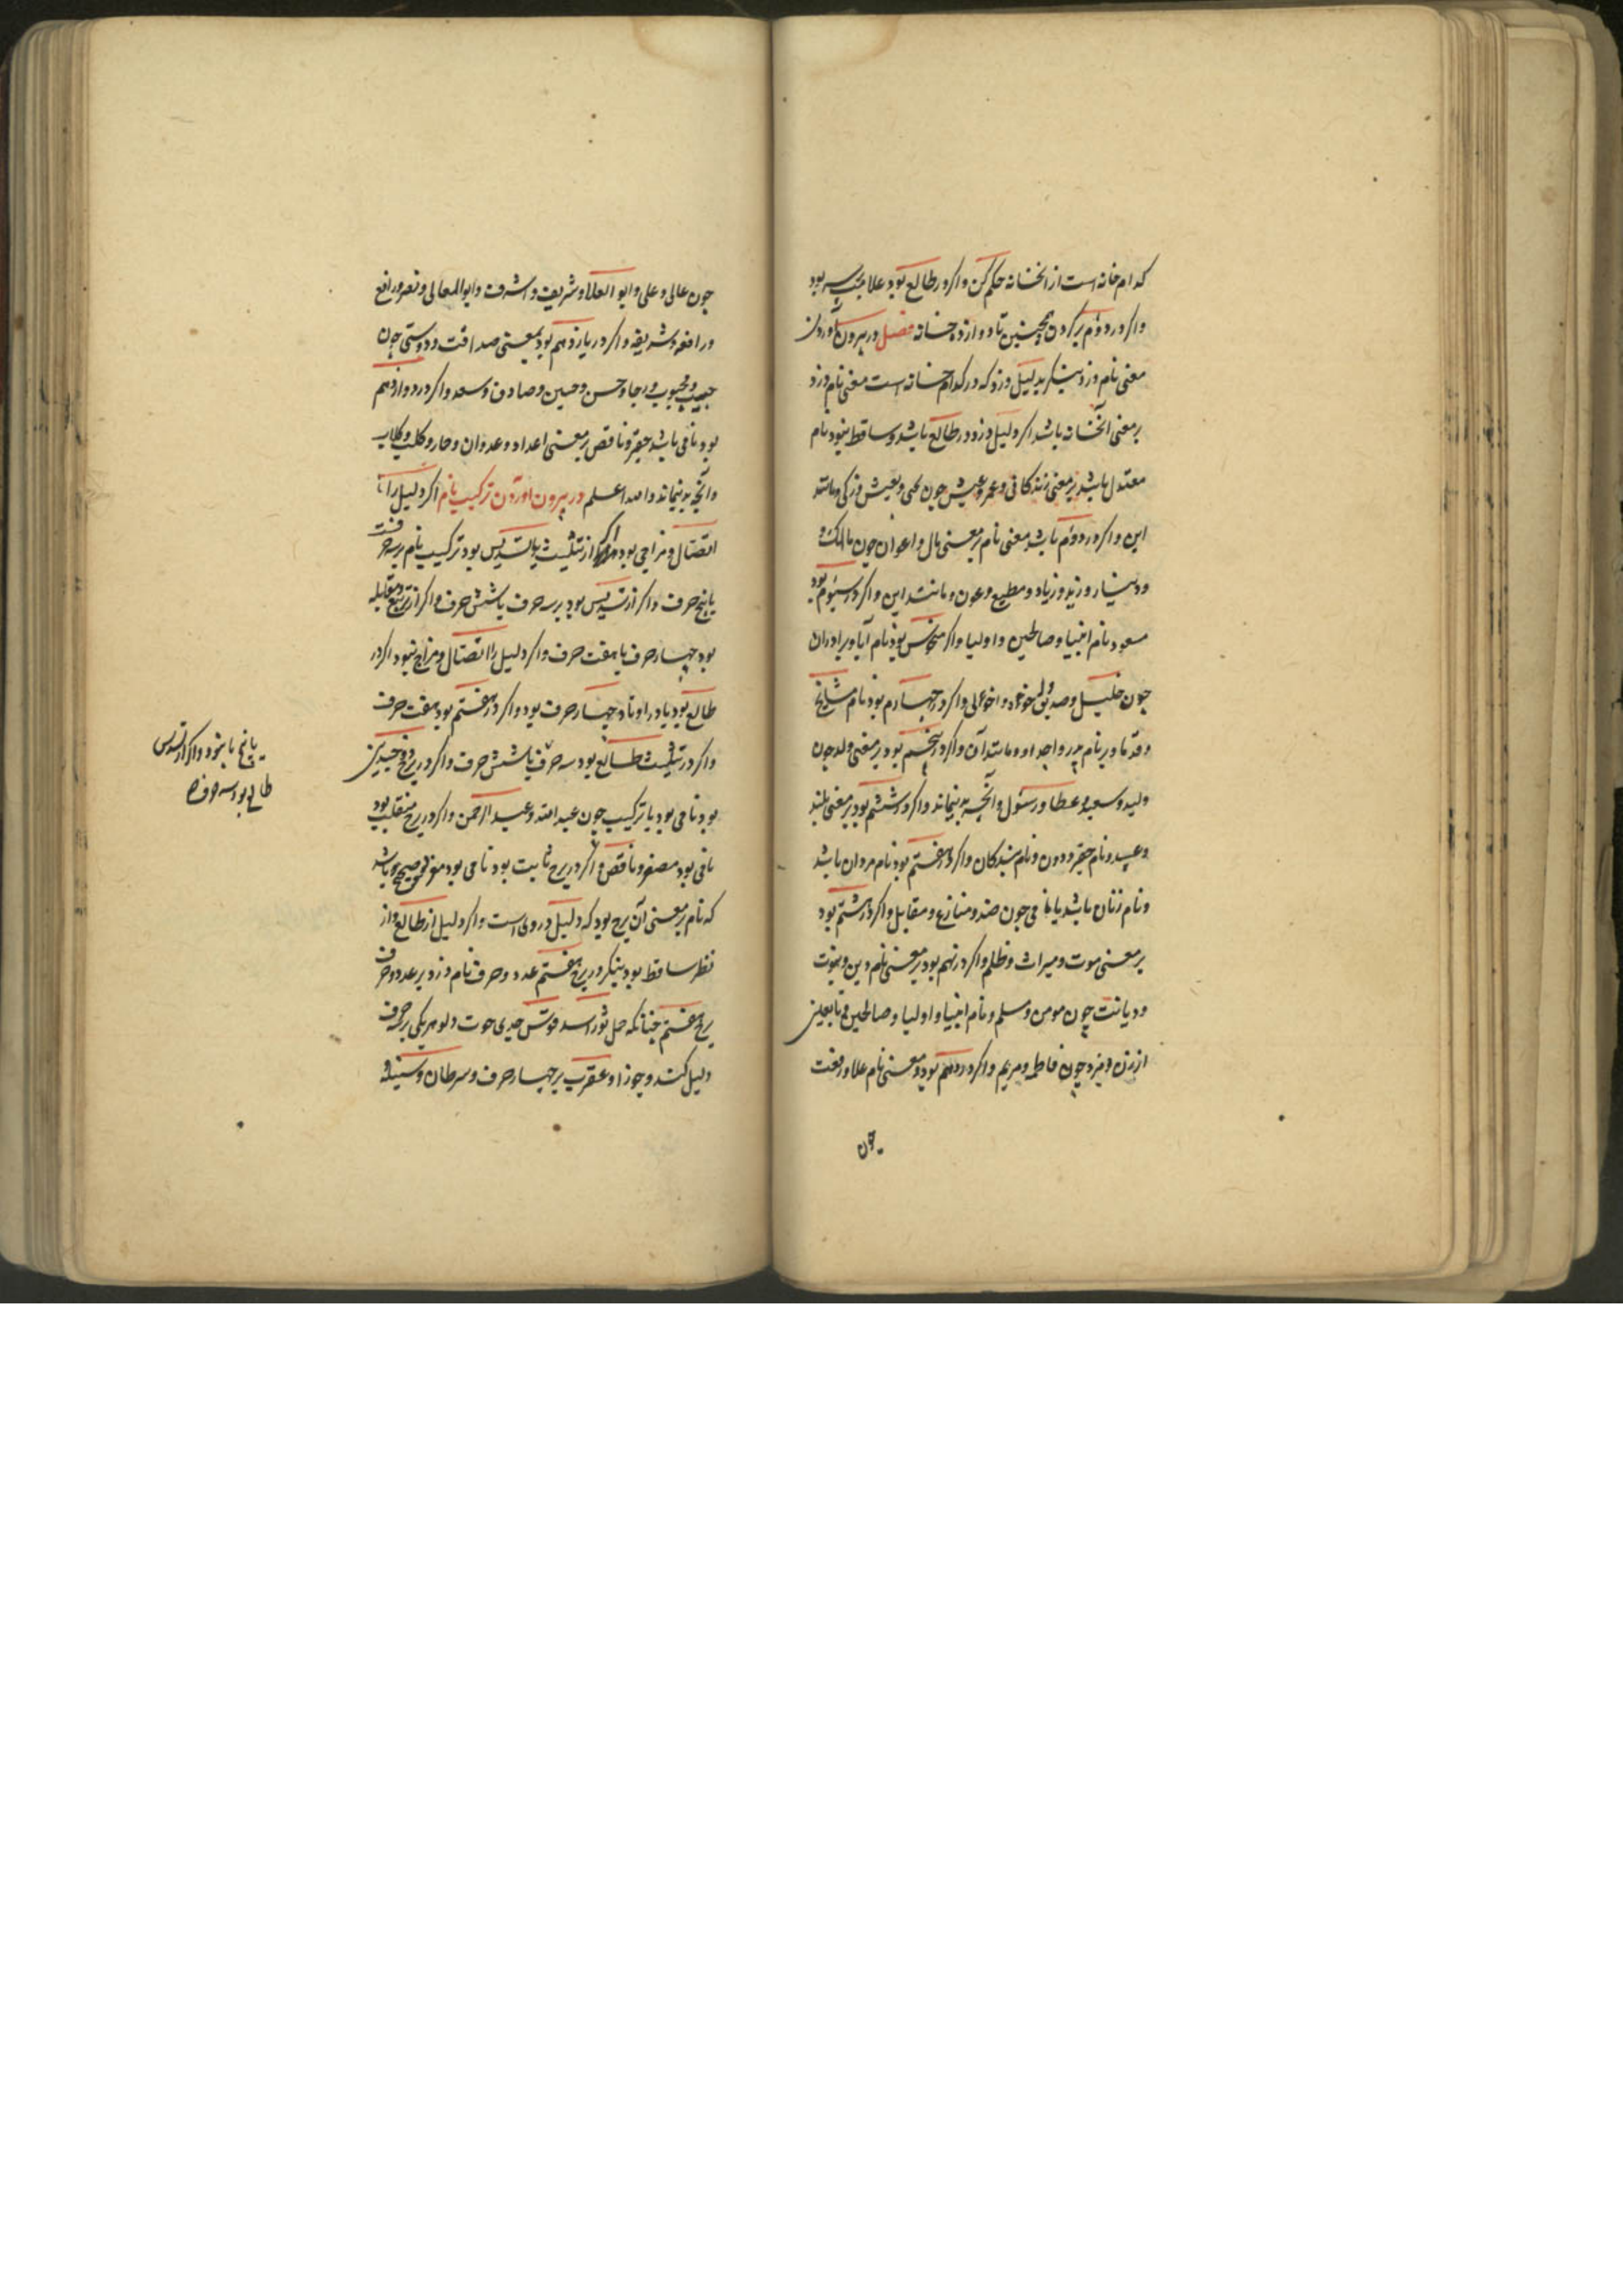 کدام خانه است از انخانه حکم کن و اکر در طالع بود علامت بسر بود
واکر در دوم بر کردن همچنین تا دوازده خانه فصل در بیرون آوردن
معنی نام دزد بنکر بدلیل دزد که در کدام خانه است معنی نام دزد
بر معنی آنخانه باشد اکر دلیل دزد در طالع باشد و ساقط نبود نام
معتدل باشد بر معنی زندکانی و عمر و عیش چون یحیی و یعیش و زکی و مانند
این و اکر در دوم باشد معنی نام بر معنی مال و اعوان چون مالک و
و دینار و زید و زیاد و مطیع و عون و مانند این و اکر در سیوم بود
مسعود نام انبیا و صالحین و اولیا و اکر منحوس بود نام آبا و برادران
چون خلیل و صدیق و اخو علی و اکر در چهارم بود نام مشایخ
و قدما و بر نام پدر و اجداد و مانند آن و اکر در پنجم بود بر معنی ولد چون
ولید و سعید و عطا و رسول و آنچه بدینماند و اکر در ششم بود بر معنی بلند
و عبید و نام حقیر و دون و نام بندکان و اکر در هفتم بود نام مردان باشد
و نام زنان باشد یا نامی چون ضد و منازع و مقابل و اکر در هشتم بود
بر معنی موت و میراث و ظلم و اکر در نهم بود بر معنی نام دین و نبوت
و دیانت چون مومن و مسلم و نام انبیا و اولیا و صالحین و تابعین
از زن و مرد چون فاطمه و مریم و اکر در دهم بود معنی نام علا و رفعت
چون
چون عالی و علی و ابو العلا و شریف و اشرف و ابو المعالی و نصر و رافع
و رافعه و شریفه و اکر در یازدهم بود بمعنی صداقت و دوستی چون
حبیب و محبوب و رجا و حسن و حسین و صادق و سعد و اکر در دوازدهم
بود نامی باشد حقیر و ناقص بر معنی اعداد و عدوان و حار و کلب و کلاب
و آنچه بدینماند والله اعلم در بیرون اوردن ترکیب نام اکر دلیل را با
اتصال و مزاجی بود اکر از تثلیث یا تسدیس بود ترکیب نام بر سه حرفست
یا پنج حرف و اکر از تسدیس بود بر سه حرف یا شش حرف و اکر از تربیع و مقابله
بود چهار حرف یا هفت حرف و اکر دلیل را اتصال و مزاج نبود اکر در
طالع بود یا در اوتاد چهار حرف بود و اکر در هفتم بود هفت حرف
و اکر در تثلیث طالع بود سه حرف یا شش حرف و اکر در برج ذو جسدین
بود نامی بود با ترکیب چون عبد الله و عبد الرحمن و اکر در برج منقلب بود
نامی بود مصغر و ناقص و اکر در برج ثابت بود نامی بود موفق و صحیح باشد
که نام بر معنی آن برج بود که دلیل در وی است و اکر دلیل از طالع و از
نظر ساقط بود بنکر در برج هفتم عدد و حرف نام دزد بر عدد و حرف
برج هفتم چنانکه حمل ثور اسد قوس جدی حوت دلو هر یکی بر سه حرف
دلیل کنند و جوزا و عقرب بر چهار حرف و سرطان و سنبله
طالع بود سه حرف